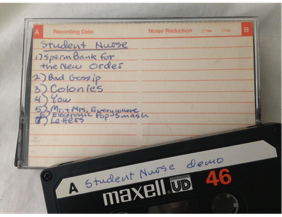 A Recording Date Noise Reduction B
Student Nurse
1) Sperm Bank for
the New Order
2) Bad Gossip
3) Colonies
4) You
5) Mr + Mrs. Everywhere
6) Electronic Pop-Smash
7) Letters
A Student Nurse demo
maxell UD 46